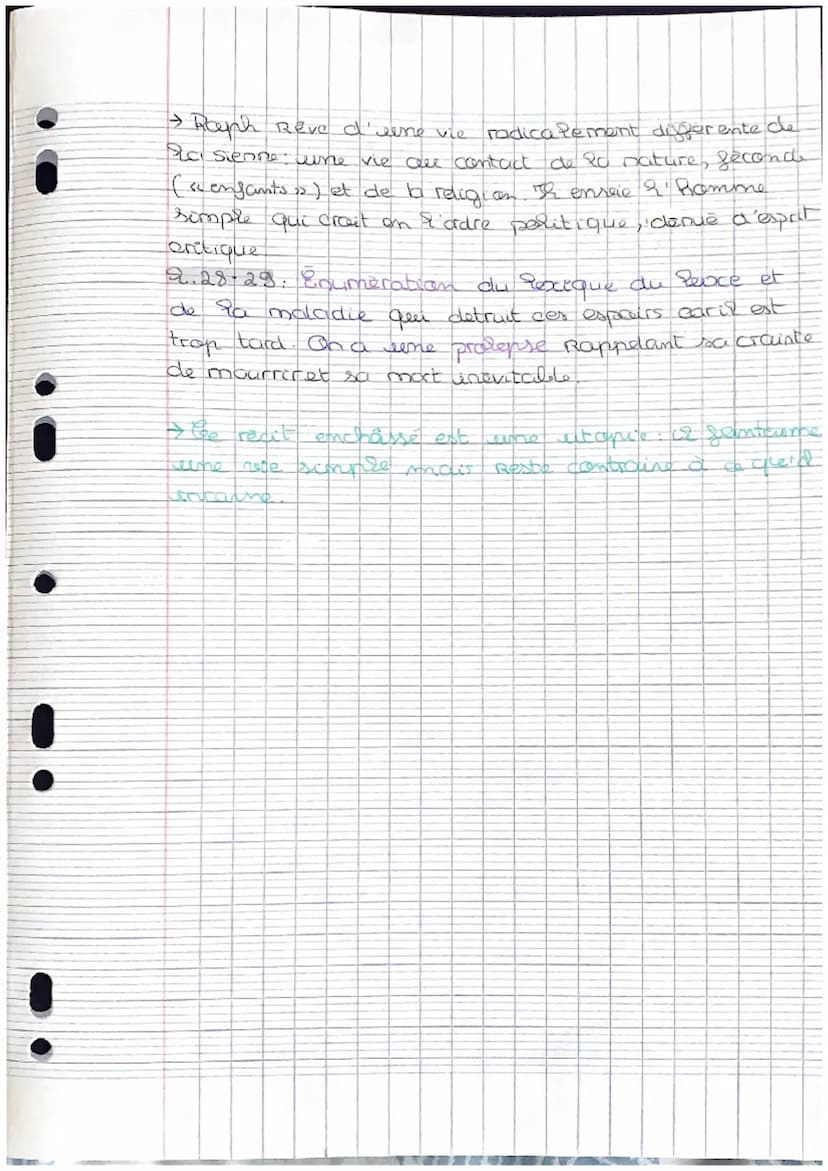 → Raph Rêve d'une vie radicalement différente de
la sienne : une vie au contact de la nature, féconde
(« enfants ») et de la religion. Il envie l'homme
simple qui croit en l'ordre politique, dénué d'esprit
critique.
l.28-29 : Énumération du lexique du luxe et
de la maladie qui détruit ces espoirs car il est
trop tard. On a une prolepse Rappelant sa crainte
de mourrir et sa mort inévitable.
→ Ce récit enchâssé est une utopie : il
une vie simple mais Reste contraire à ce qu'il
incarne.